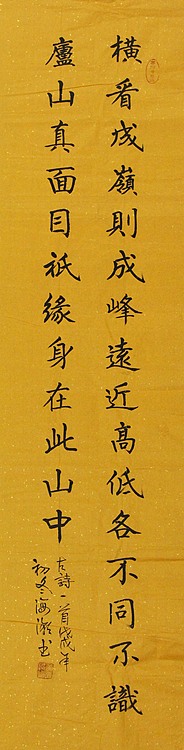 橫看成嶺則成峰遠近髙低各不同不識
廬山真面目祇緣身在此山中
古詩一首戊戌年
初冬海書